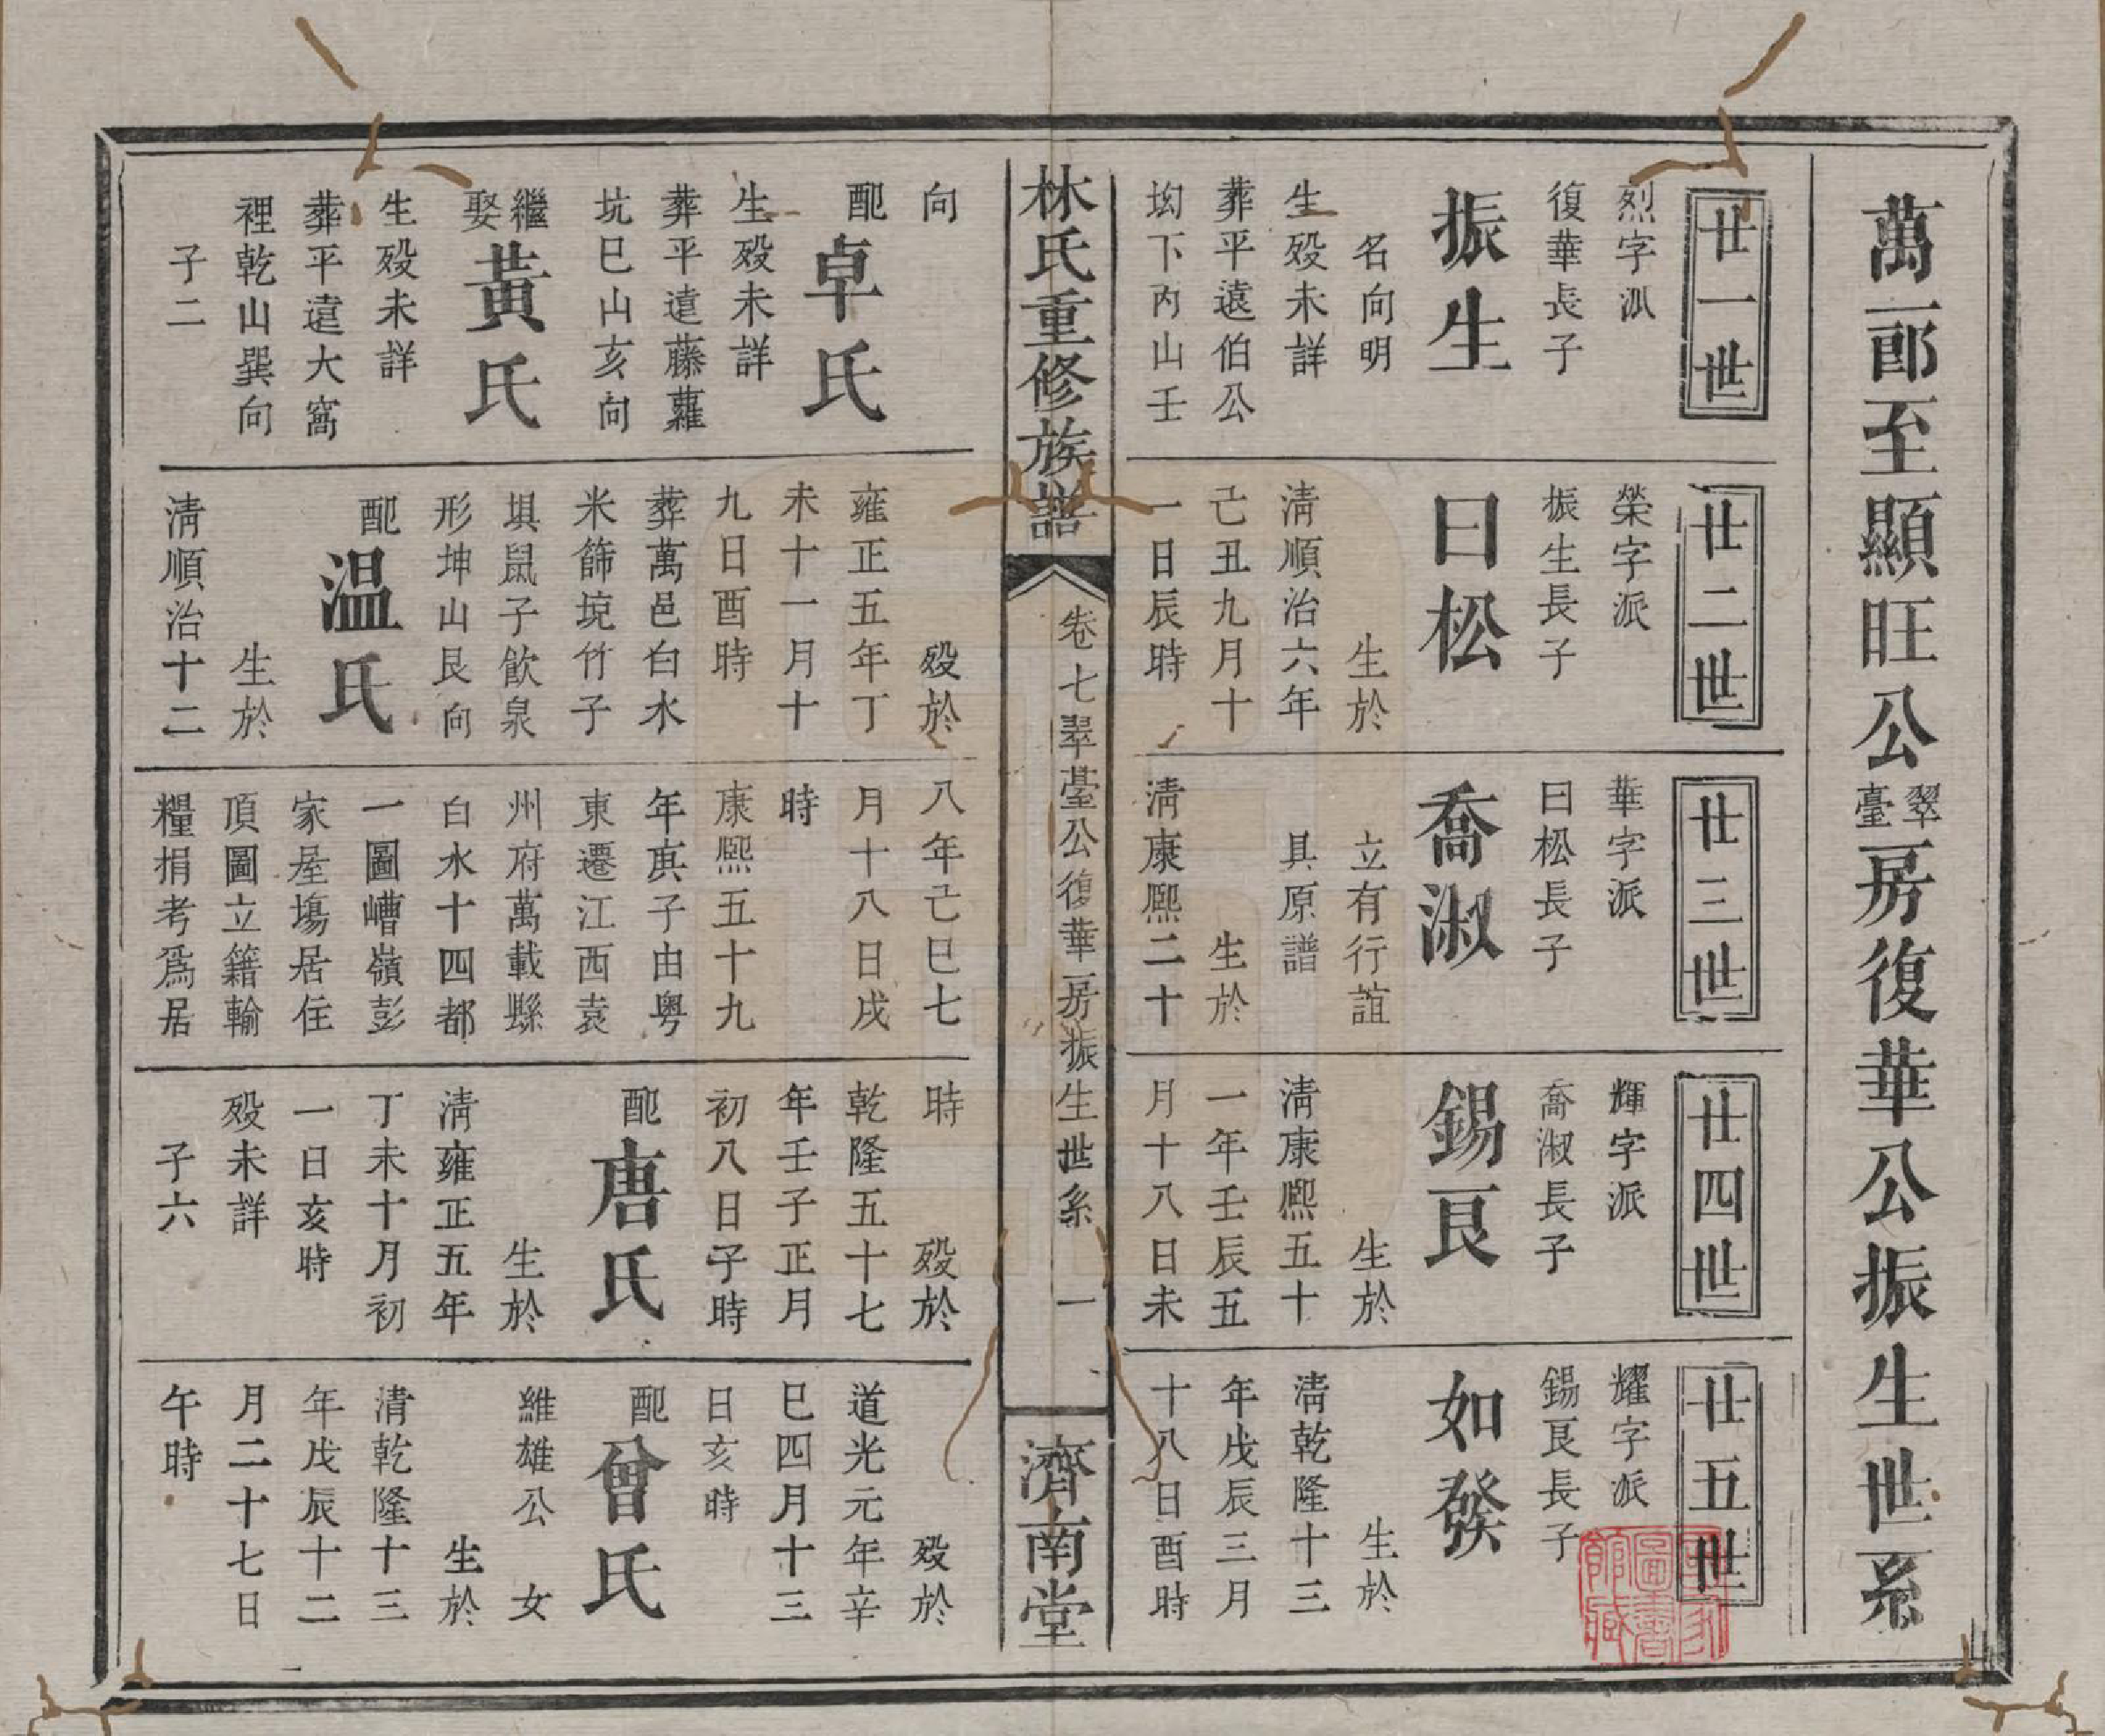 萬一郎至顯旺公翠臺房復華公振生世系
廿一世
烈字派
復華長子
振生
名向明
生歿未詳
葬平遠伯公
坳下丙山壬
廿二世
榮字派
振生長子
曰松
生於
清順治六年
己丑九月十
一日辰時
廿三世
華字派
曰松長子
喬淑
立有行誼
具原譜
生於
清康熙二十
廿四世
輝字派
喬淑長子
錫良
生於
清康熙五十
一年壬辰五
月十八日未
廿五世
耀字派
錫良長子
如發
生於
清乾隆十三
年戊辰三月
十八日酉時
林氏重修族譜
卷七翠臺公復華房振生世系 一
濟南堂
向
配卓氏
生歿未詳
葬平遠藤蘿
坑巳山亥向
繼娶黃氏
生歿未詳
葬平遠大窩
裡乾山巽向
子二
歿於
雍正五年丁
未十一月十
九日酉時
葬萬邑白水
米篩境竹子
垻鼠子飲泉
形坤山艮向
配溫氏
生於
清順治十二
八年己巳七
月十八日戌
時
康熙五十九
年庚子由粵
東遷江西袁
州府萬載縣
白水十四都
一圖嶆嶺彭
家屋塲居住
頂圖立籍輸
糧捐考爲居
時
歿於
乾隆五十七
年壬子正月
初八日子時
配唐氏
生於
清雍正五年
丁未十月初
一日亥時
歿未詳
子六
歿於
道光元年辛
巳四月十三
日亥時
配曾氏
維雄公 女
生於
清乾隆十三
年戊辰十二
月二十七日
午時